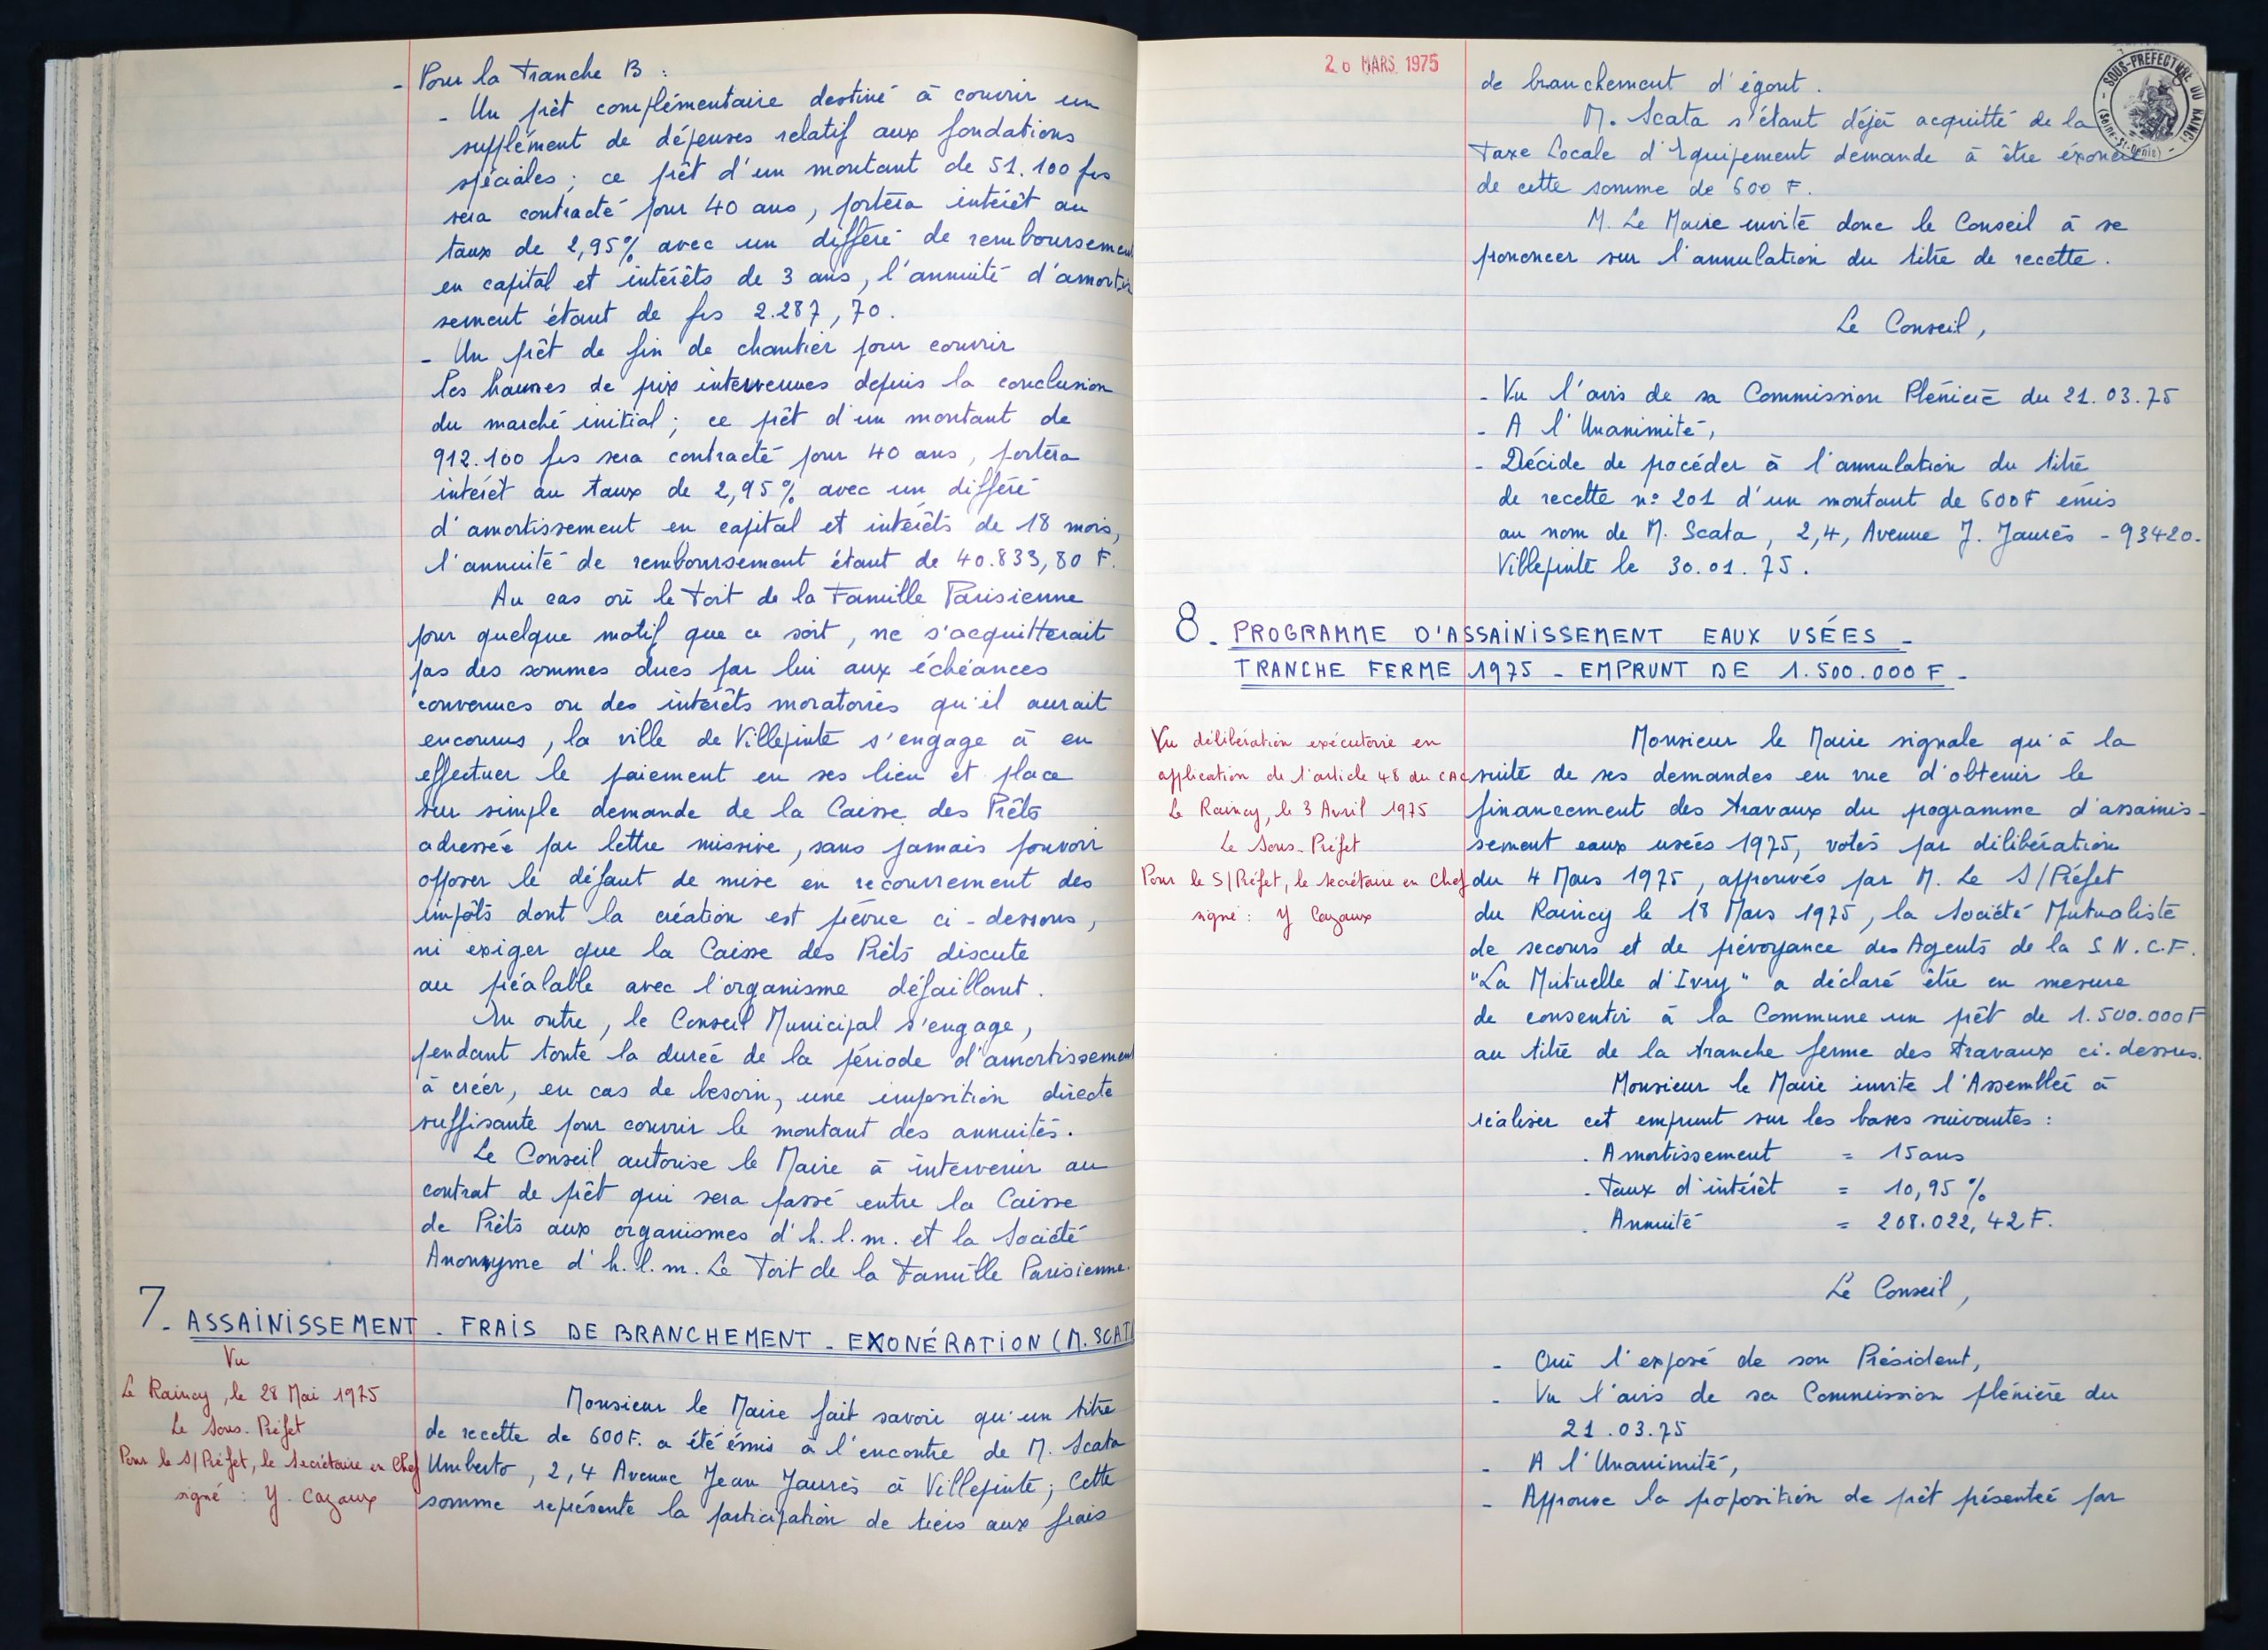 - Pour la Tranche B :
- Un prêt complémentaire destiné à couvrir un
supplément de dépenses relatif aux fondations
spéciales ; ce prêt d'un montant de 51.100 frs
sera contracté pour 40 ans, portera intérêt au
taux de 2,95% avec un différé de remboursement
en capital et intérêts de 3 ans, l'annuité d'amortis
sement étant de frs 2.287,70.
- Un prêt de fin de chantier pour couvrir
les hausses de prix intervenues depuis la conclusion
du marché initial ; ce prêt d'un montant de
912.100 frs sera contracté pour 40 ans, portera
intérêt au taux de 2,95% avec un différé
d'amortissement en capital et intérêts de 18 mois,
l'annuité de remboursement étant de 40.833,80 F.
Au cas où le Toit de la Famille Parisienne
pour quelque motif que ce soit, ne s'acquitterait
pas des sommes dues par lui aux échéances
convenues ou des intérêts moratoires qu'il aurait
encourus, la ville de Villepinte s'engage à en
effectuer le paiement en ses lieu et place
sur simple demande de la Caisse des Prêts
adressée par lettre missive, sans jamais pouvoir
opposer le défaut de mise en recouvrement des
impôts dont la création est prévue ci-dessous,
ni exiger que la Caisse des Prêts discute
au préalable avec l'organisme défaillant.
En outre, le Conseil Municipal s'engage,
pendant toute la durée de la période d'amortissement
à créer, en cas de besoin, une imposition directe
suffisante pour couvrir le montant des annuités.
Le Conseil autorise le Maire à intervenir au
contrat de prêt qui sera passé entre la Caisse
de Prêts aux organismes d'h.l.m. et la Société
Anonyme d'h.l.m. Le Toit de la Famille Parisienne.
7. ASSAINISSEMENT - FRAIS DE BRANCHEMENT - EXONÉRATION (M. SCATA
Vu
Le Raincy, le 28 Mai 1975
Le Sous-Préfet
Pour le S/Préfet, le Secrétaire en Chef
signé : Y. Cazaux
Monsieur le Maire fait savoir qu'un titre
de recette de 600F. a été émis à l'encontre de M. Scata
Umberto, 2,4 Avenue Jean Jaurès à Villepinte ; Cette
somme représente la participation de tiers aux frais
26 MARS 1975
SOUS-PREFECTURE DU RAINCY
(Seine-St-Denis)
de branchement d'égout.
M. Scata s'étant déjà acquitté de la
Taxe Locale d'Equipement demande à être éxonéré
de cette somme de 600 F.
M. Le Maire invite donc le Conseil à se
prononcer sur l'annulation du titre de recette.
Le Conseil,
- Vu l'avis de sa Commission Plénière du 21.03.75
- A l'Unanimité,
- Décide de procéder à l'annulation du titre
de recette n° 201 d'un montant de 600F émis
au nom de M. Scata, 2,4, Avenue J. Jaurès - 93420.
Villepinte le 30.01.75.
8. PROGRAMME D'ASSAINISSEMENT EAUX USÉES -
TRANCHE FERME 1975 - EMPRUNT DE 1.500.000 F -
Vu délibération exécutoire en
application de l'article 48 du CAC
Le Raincy, le 3 Avril 1975
Le Sous-Préfet
Pour le S/Préfet, le Secrétaire en Chef
signé : Y Cazaux
Monsieur le Maire signale qu'à la
suite de ses demandes en vue d'obtenir le
financement des travaux du programme d'assainis-
sement eaux usées 1975, votés par délibération
du 4 Mars 1975, approuvés par M. Le S/Préfet
du Raincy le 18 Mars 1975, la Société Mutualiste
de secours et de prévoyance des Agents de la S.N.C.F.
"La Mutuelle d'Ivry" a déclaré être en mesure
de consentir à la Commune un prêt de 1.500.000F
au titre de la tranche ferme des travaux ci-dessus.
Monsieur le Maire invite l'Assemblée à
réaliser cet emprunt sur les bases suivantes :
. Amortissement = 15 ans
. Taux d'intérêt = 10,95 %
. Annuité = 208.022,42 F.
Le Conseil,
- Ouï l'exposé de son Président,
- Vu l'avis de sa Commission plénière du
21.03.75
- A l'Unanimité,
- Approuve la proposition de prêt présentée par